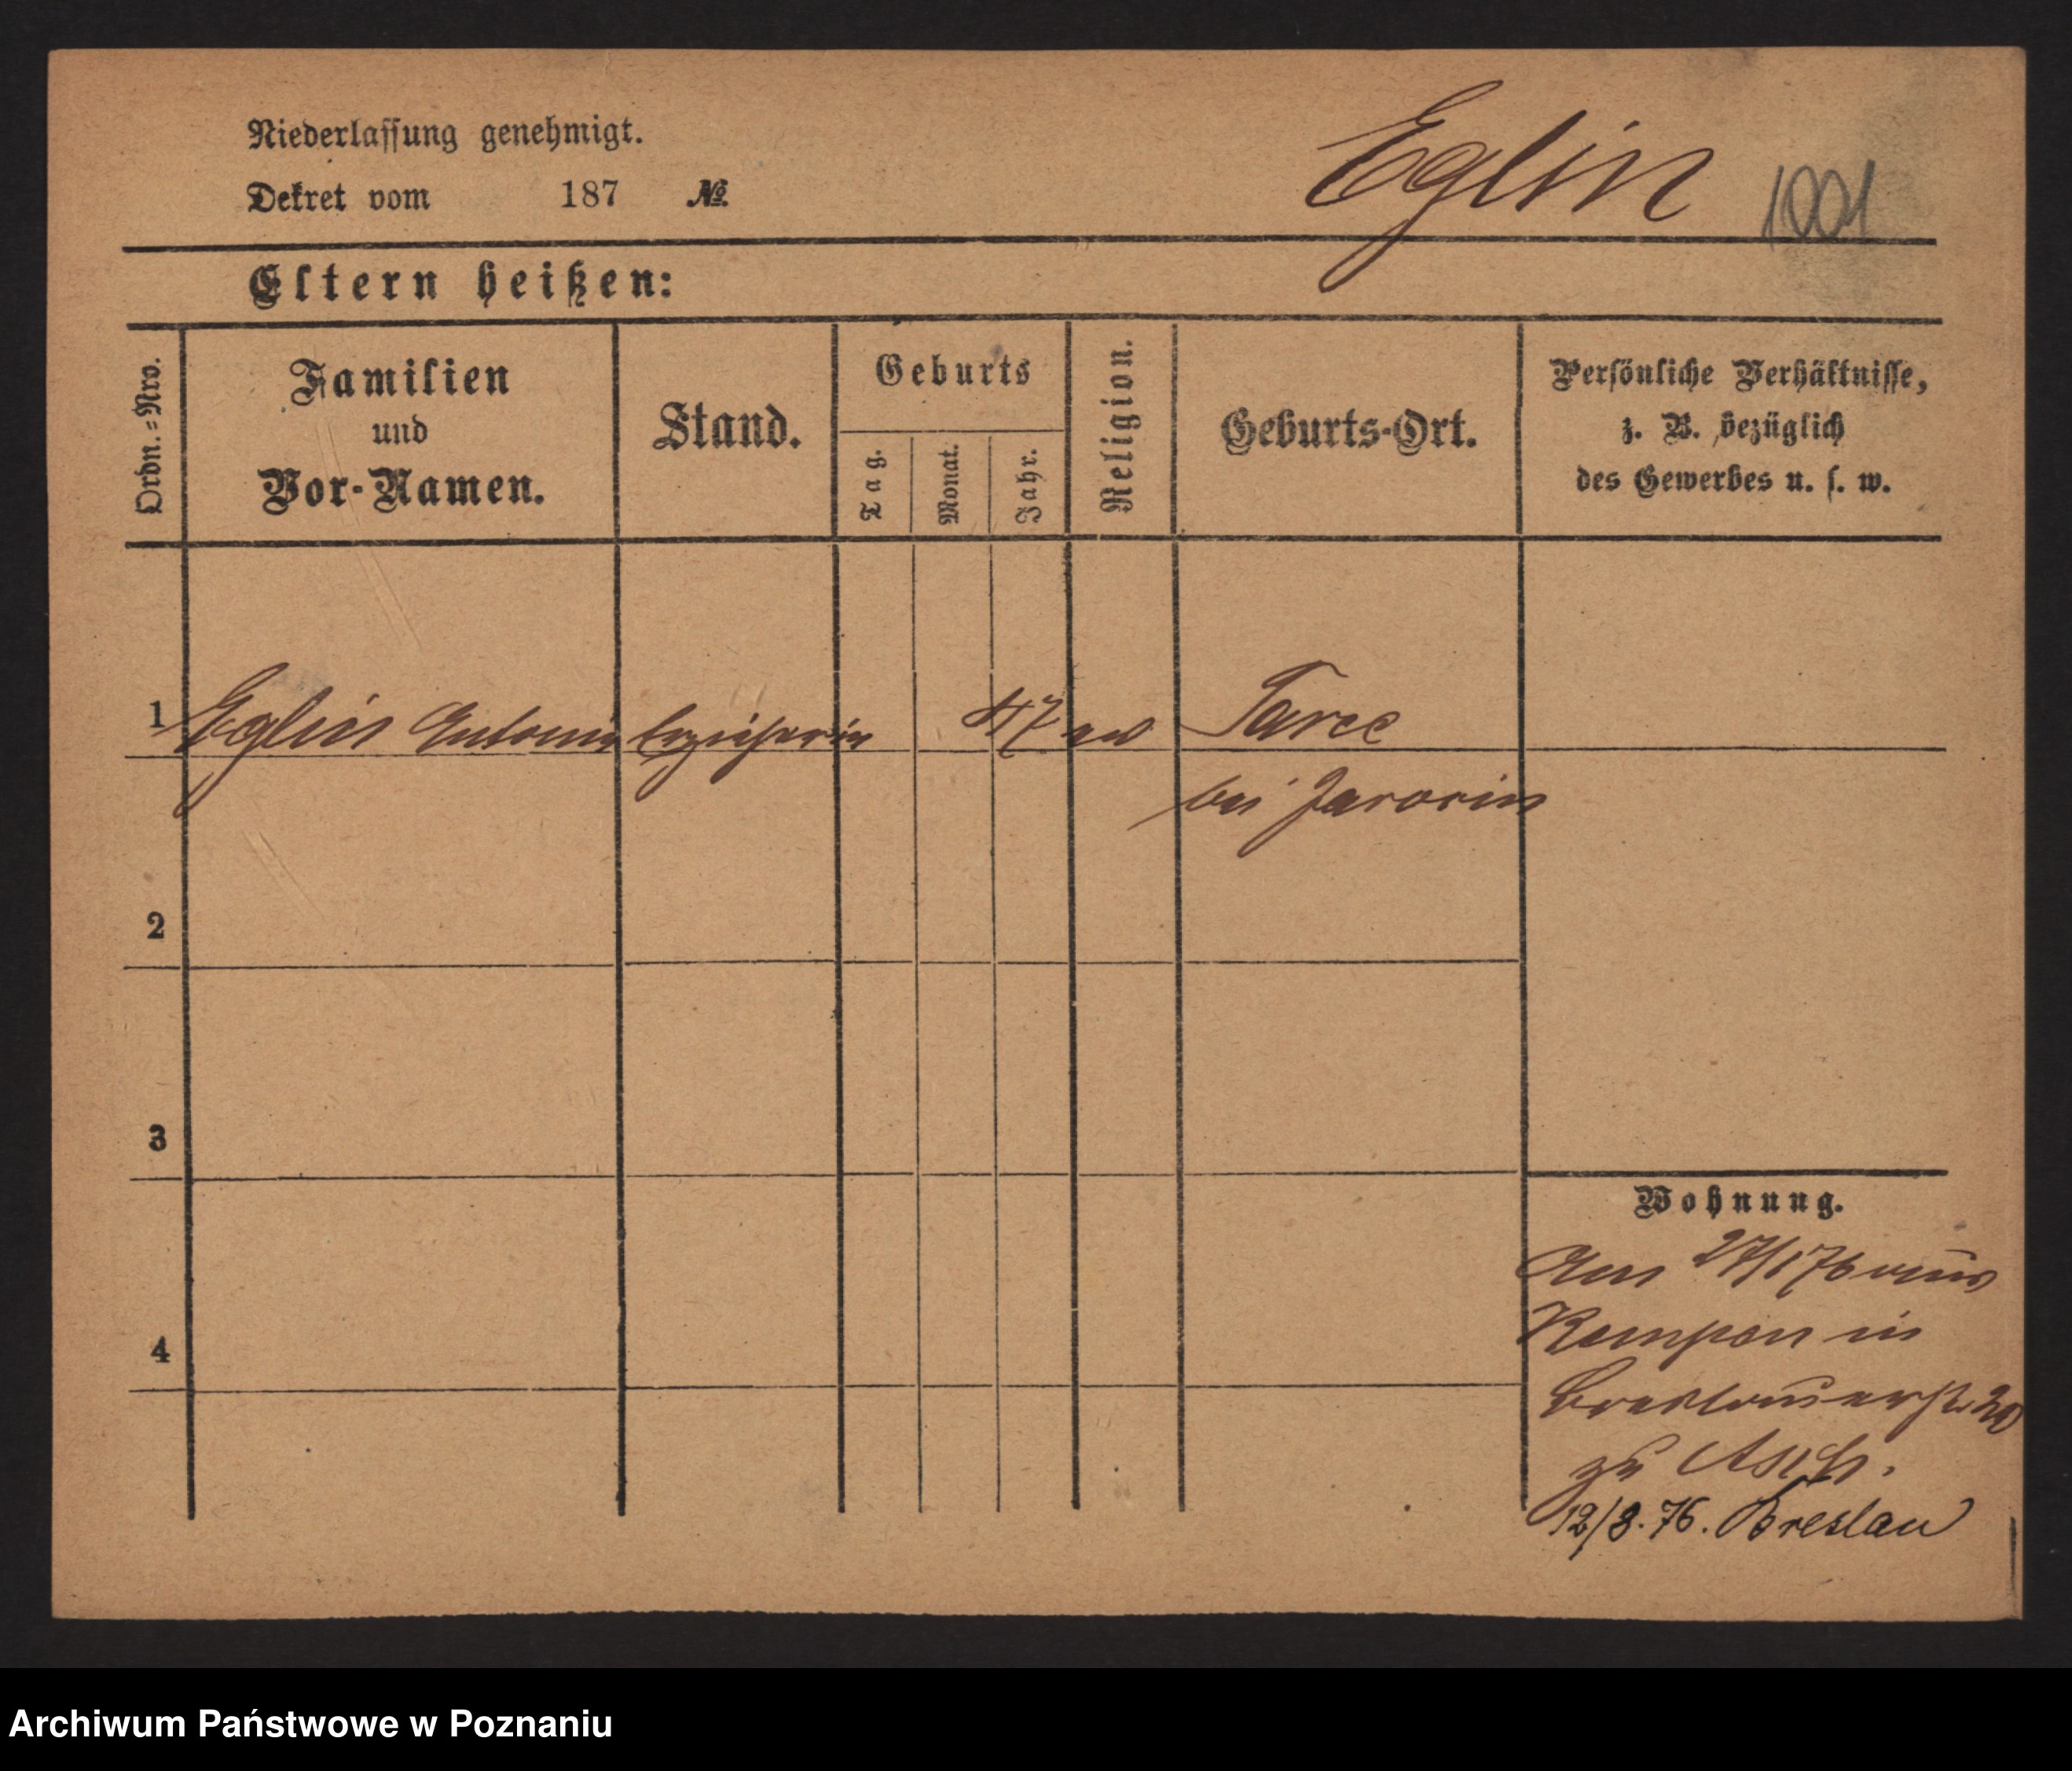 Niederlassung genehmigt.
Dekret vom 187 №
Eglin
1001
Eltern heißen:
Ordn.-Nro.
Familien
und
Vor-Namen.
Stand.
Geburts
Tag.
Monat.
Jahr.
Religion.
Geburts-Ort.
Persönliche Verhältnisse,
z. B. bezüglich
des Gewerbes u. s. w.
1 Eglin Antonie Erzieherin 47 ev Tarce
bei Jarocin
2
3
4
Wohnung.
Am 27/1 76 aus
Kempen in
Breslauerstr 20
zu
12/3. 76. Breslau
Archiwum Państwowe w Poznaniu